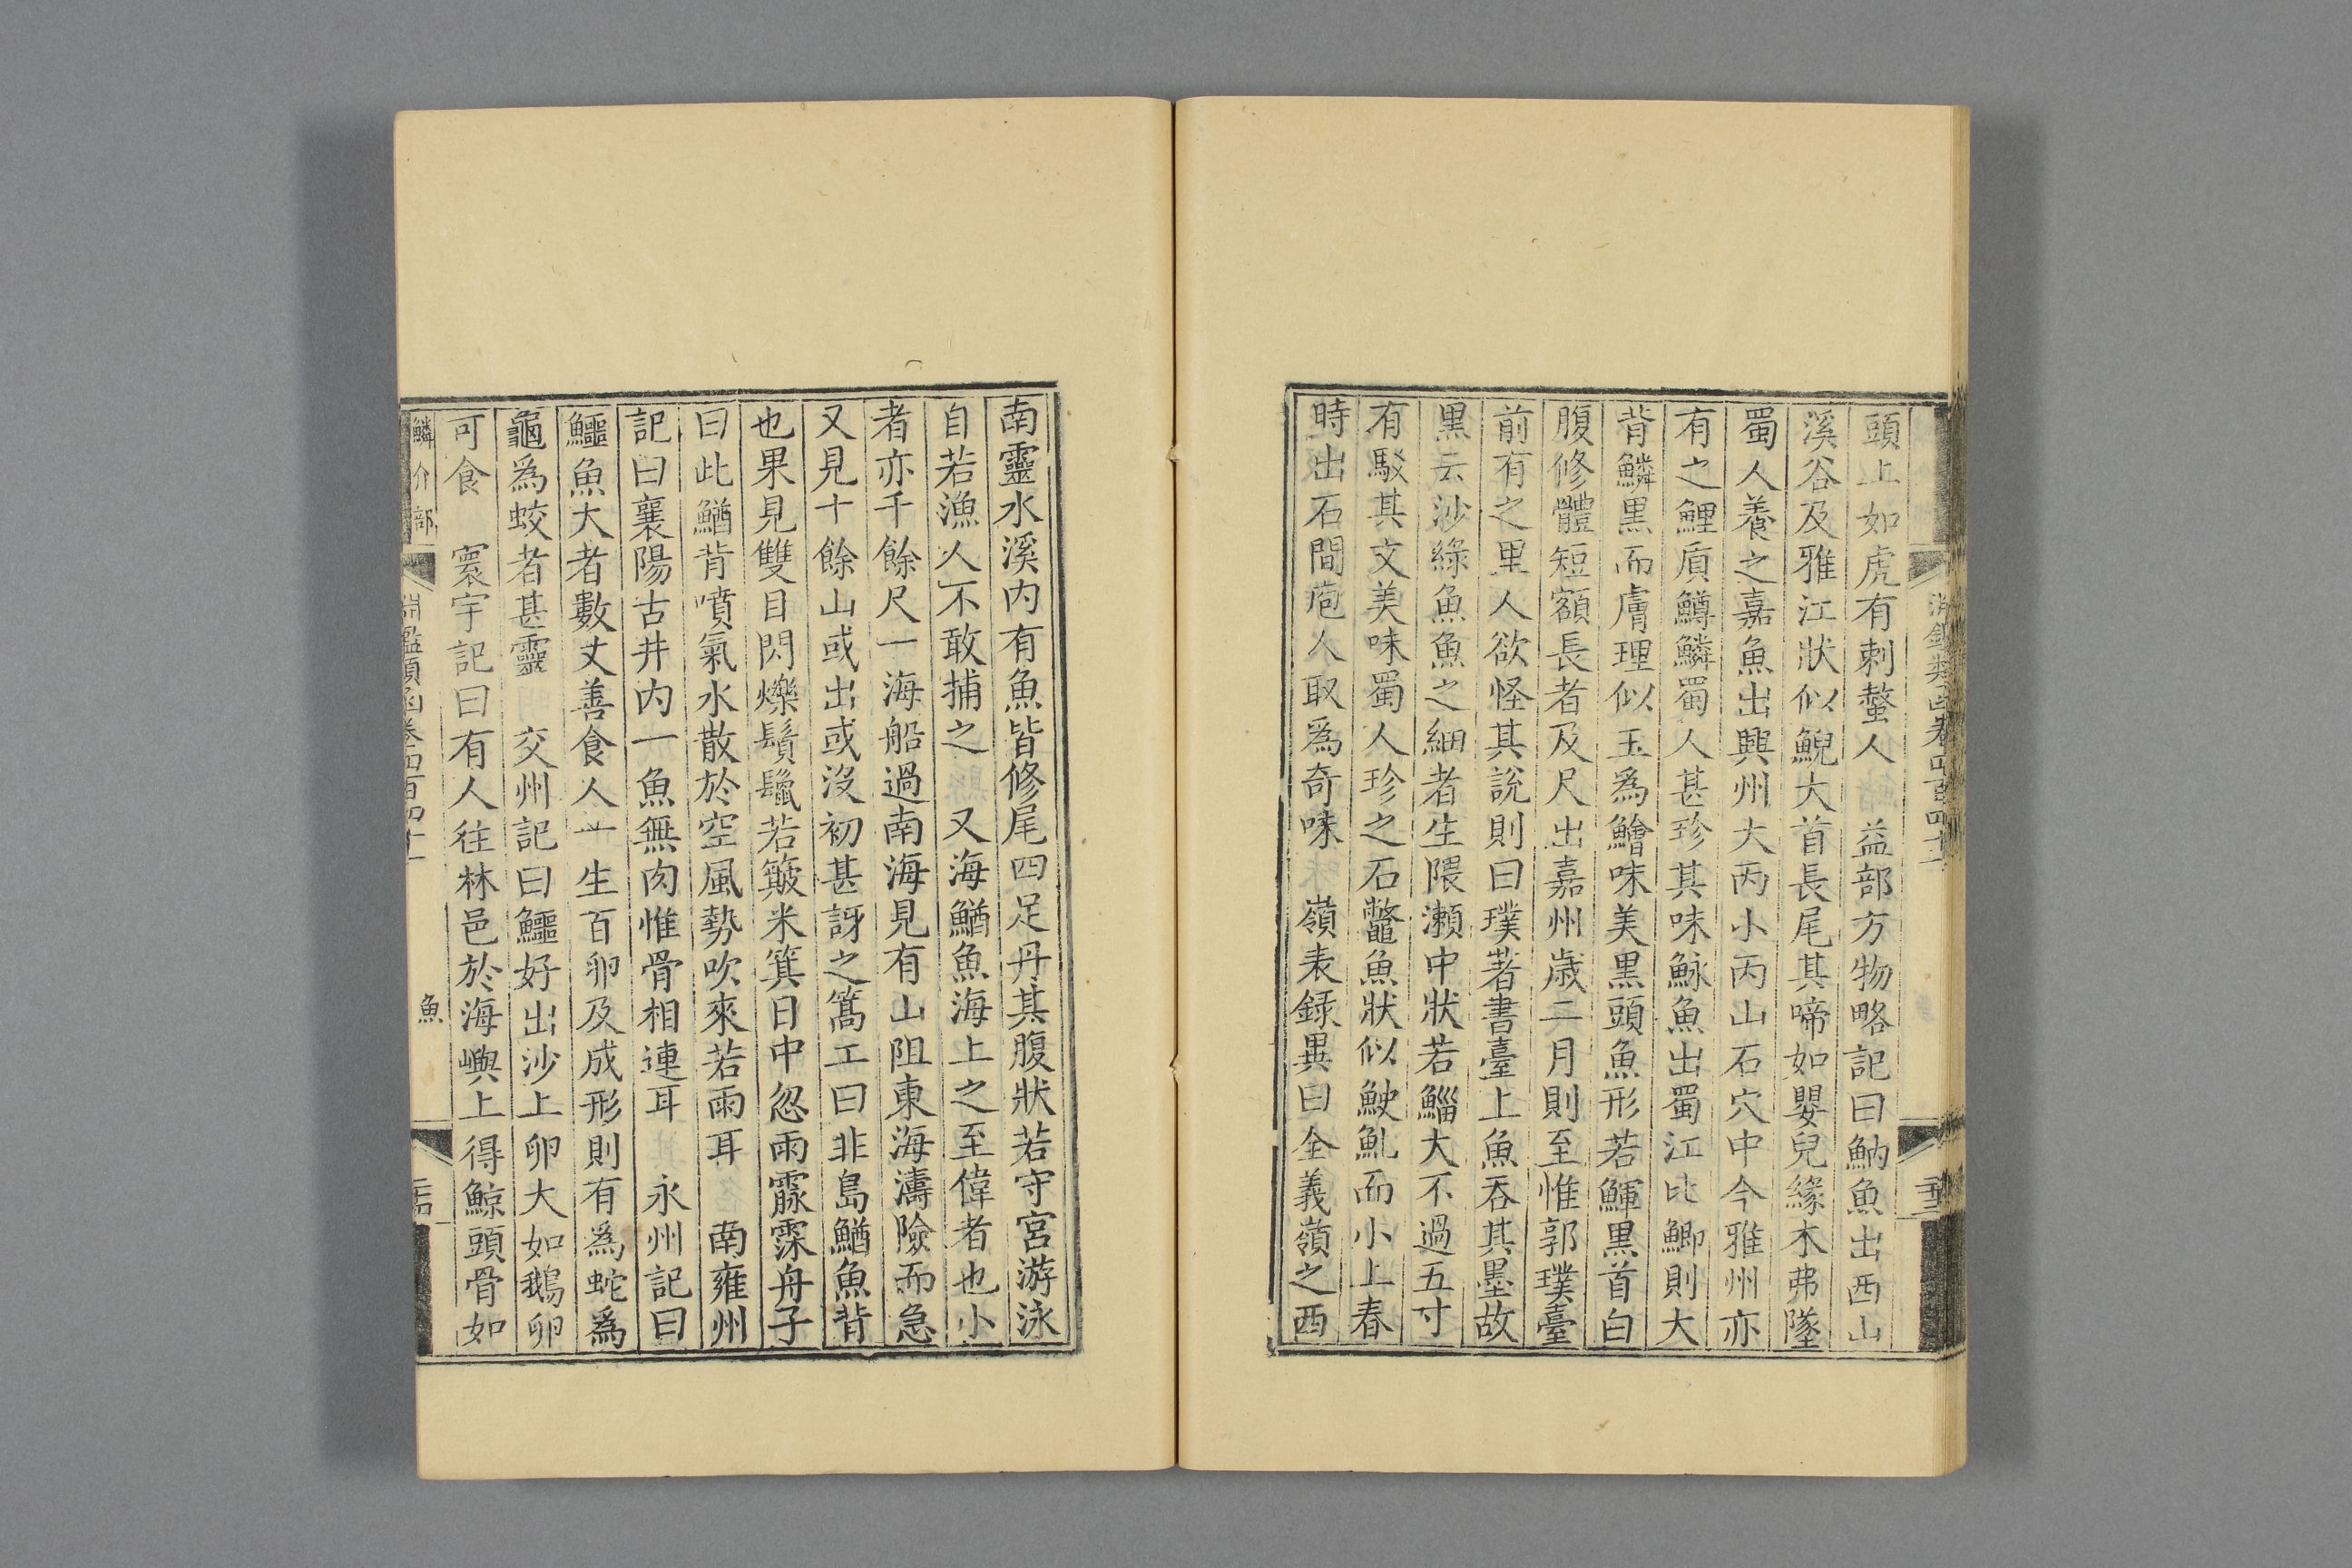 頭上如虎有刺螫人　益部方物略記曰魶魚出西山
溪谷及雅江狀似鯢大首長尾其啼如嬰兒緣木弗墜
蜀人養之嘉魚出興州大丙小丙山石穴中今雅州亦
有之鯉質鱒鱗蜀人甚珍其味鮛魚出蜀江比鯽則大
背鱗黑而膚理似玉為鱠味美黑頭魚形若鯶黑首白
腹修體短額長者及尺出嘉州歲二月則至惟郭璞臺
前有之里人欲怪其說則曰璞著書臺上魚吞其墨故
黑云沙綠魚魚之細者生隈瀨中狀若鯔大不過五寸
有駁其文美味蜀人珍之石鼈魚狀似䰾䰲而小上春
時出石間庖人取為奇味　嶺表錄異曰全義嶺之西
南靈水溪內有魚皆修尾四足丹其腹狀若守宮游泳
自若漁人不敢捕之　又海鰌魚海上之至偉者也小
者亦千餘尺一海船過南海見有山阻東海濤險而急
又見十餘山或出或沒初甚訝之篙工曰非島鰌魚背
也果見雙目閃爍鬚鬣若簸米箕日中忽雨霢霂舟子
曰此鰌背噴氣水散於空風勢吹來若雨耳　南雍州
記曰襄陽古井內一魚無肉惟骨相連耳　永州記曰
鱷魚大者數丈善食人一生百卵及成形則有為蛇為
龜為蛟者甚靈　交州記曰鱷好出沙上卵大如鵝卵
可食　寰宇記曰有人往林邑於海嶼上得鯨頭骨如
鱗介部
淵鑑類函卷四百四十一
魚